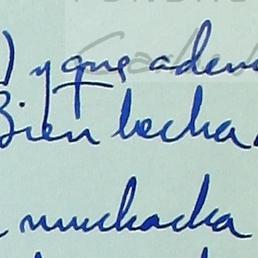 ) y que adem
Bien hecha
muchacha